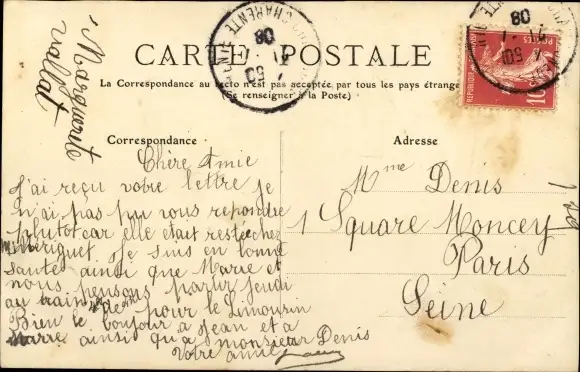 Marguerite
vallat
CHARENTE
08
CARTE POSTALE
La Correspondance au recto n'est pas acceptée par tous les pays étrange
(Se renseigner à la Poste)
REPUBLIQUE
POSTES
10
08
Correspondance
Adresse
Chère Amie
J'ai reçu votre lettre je
n'ai pas pu vous repondre
plutot car elle etait restée chez
Je suis en bonne
santé ainsi que Marie et
nous pensons partir jeudi
au train de pour le Limousin
Bien le bonjour a Jean et a
ainsi qu'a monsieur Denis
Votre amie
Mme Denis
1 Square Moncey
Paris
Seine